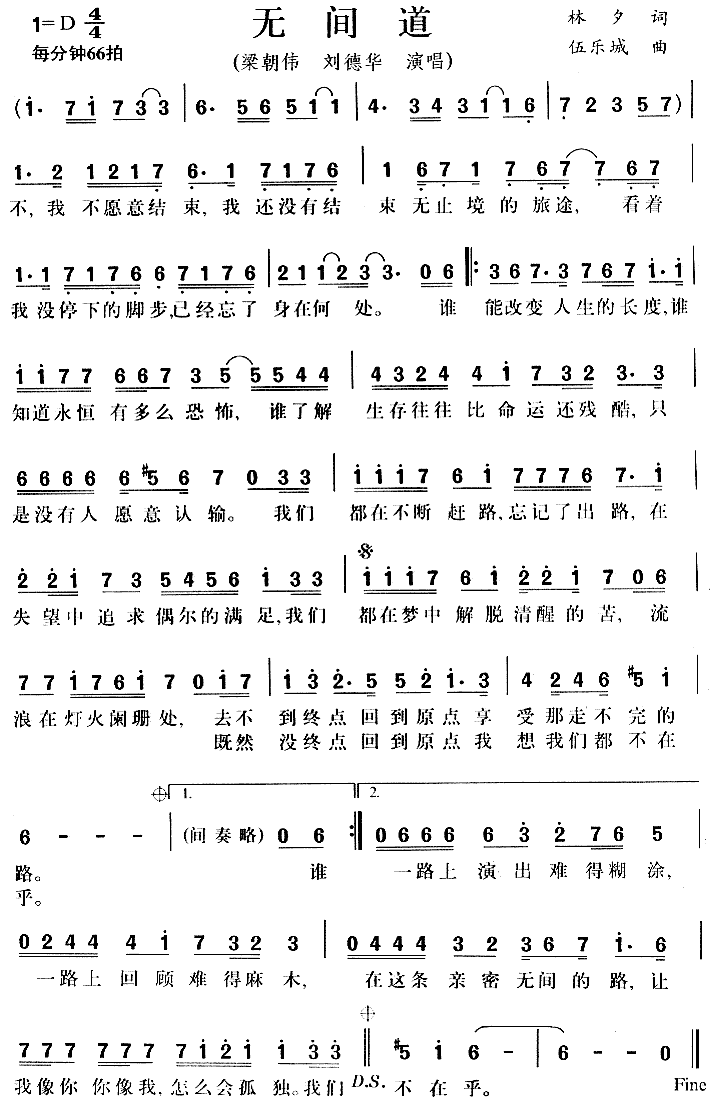 1=D 4/4
无间道
林夕 词
每分钟66拍
(梁朝伟 刘德华 演唱)
伍乐城 曲
(i· 7i 733 | 6· 56 511 | 4· 34 3116 | 7 2 3 57) |
1·2 1217 6·1 7176 | 1 671 767 767 |
不,我 不愿意结 束,我 还没有结 束 无止境的 旅途, 看着
1·1 7176 6 7176 | 211233· 06 |: 367·3 767 i·i |
我没停下的脚步,已经忘了 身在何 处。 谁 能改变人生的长度,谁
ii77 6673 5 5544 | 4324 4i 732 3·3 |
知道永恒 有多么恐怖, 谁了解 生存往往 比命运还残 酷,只
6666 6#56 7 033 | iii7 6i 7776 7·i |
是没有人 愿意认输。 我们 都在不断 赶路,忘记了出路,在
2 22i 73 5456 i33 | iii7 6i 22i 706 |
失望中 追求偶尔的满 足,我们 都在梦中 解脱清醒的 苦, 流
77i76i 7 0i7 | i32·5 52i·3 | 4 246 #5i |
浪在灯火阑珊处, 去不 到终点回到原点享 受那走不完的
既然 没终点回到原点我 想我们都不在
1.
2.
6 - - - | (间奏略) 06 :| 0666 63 276 5 |
路。 谁 一路上 演出难得糊 涂,
乎。
0244 4i 732 3 | 0444 32 367 i·6 |
一路上 回顾难得麻 木, 在这条 亲密无间的 路,让
777 777 7i2i i33 || #5 i 6 - | 6 - - 0 ||
我像你 你像我,怎么会孤 独。我们 D.S. 不在乎。 Fine